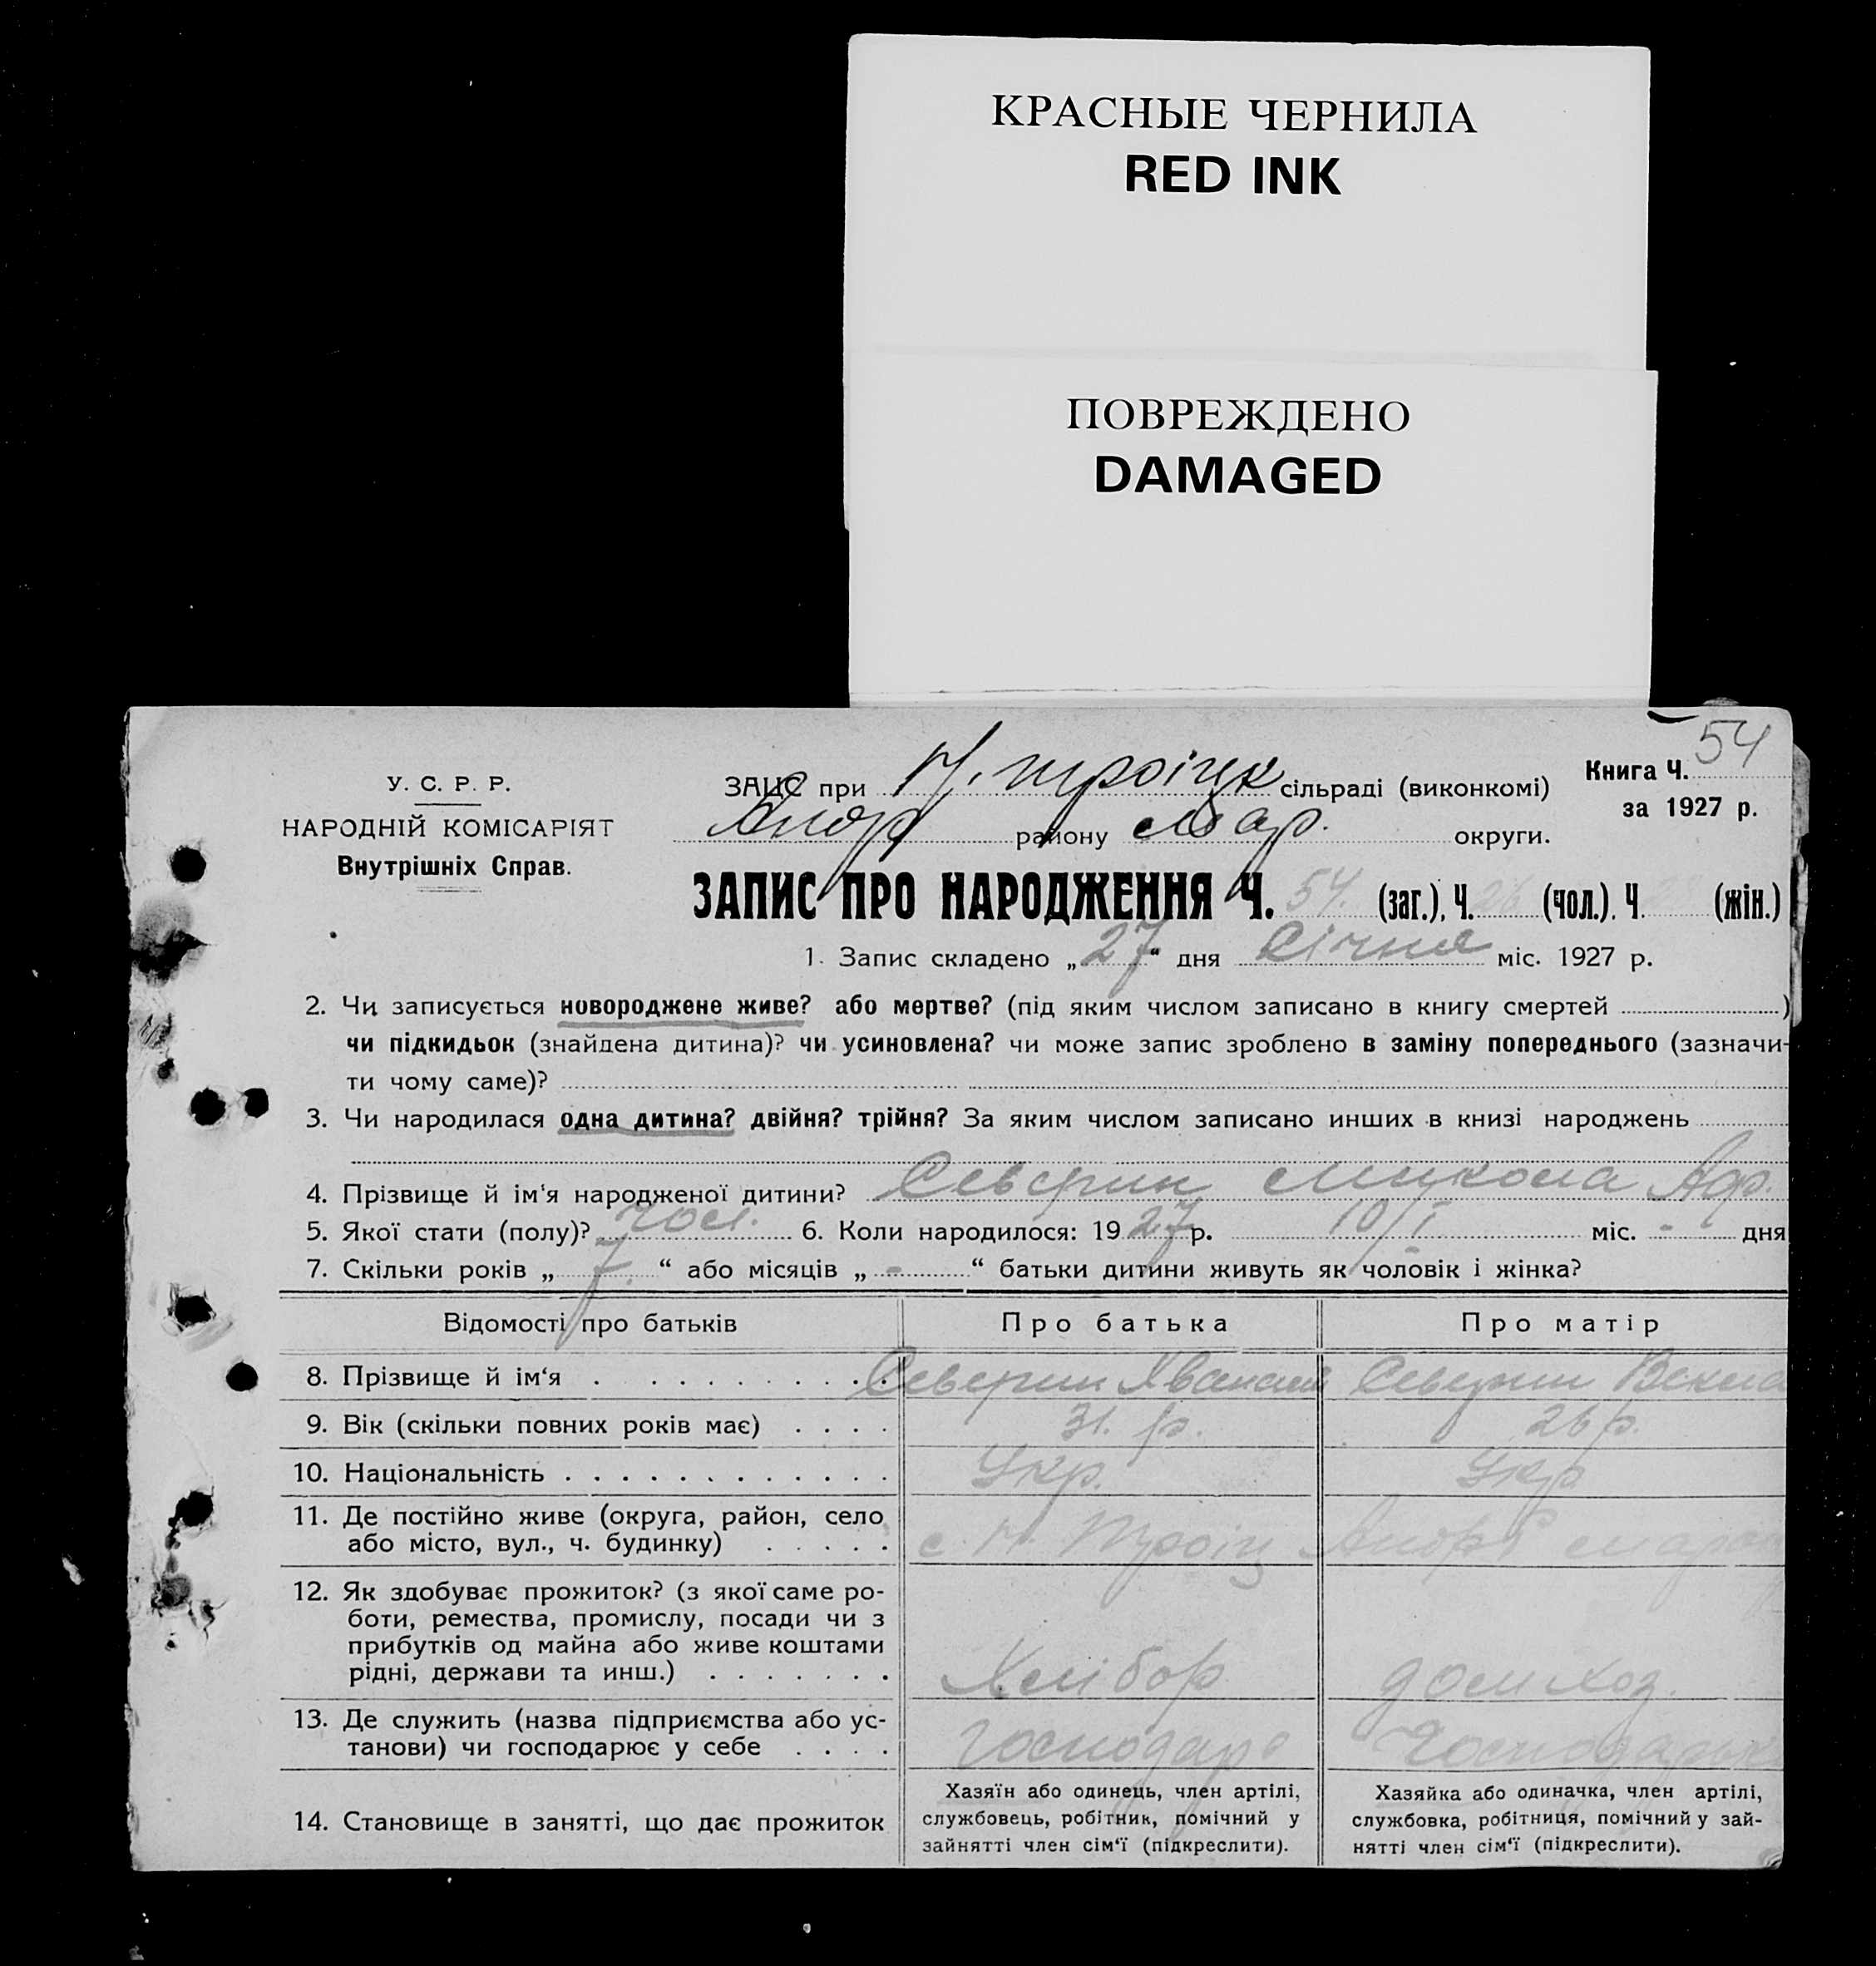 КРАСНЫЕ ЧЕРНИЛА
RED INK
ПОВРЕЖДЕНО
DAMAGED
54
У. С. Р. Р.
НАРОДНІЙ КОМІСАРІЯТ
Внутрішніх Справ.
ЗАЦС при Н. Троіцк сільраді (виконкомі)
району Мар. округи.
Книга Ч.
за 1927 р.
ЗАПИС ПРО НАРОДЖЕННЯ Ч. 54. (заг.), Ч. 26 (чол.). Ч. (жін.)
1. Запис складено „27“ дня Січня міс. 1927 р.
2. Чи записується новороджене живе? або мертве? (під яким числом записано в книгу смертей )
чи підкидьок (знайдена дитина)? чи усиновлена? чи може запис зроблено в заміну попереднього (зазначи-
ти чому саме)?
3. Чи народилася одна дитина? двійня? трійня? За яким числом записано инших в книзі народжень
4. Прізвище й ім'я народженої дитини? Северин Микола Аф.
5. Якої стати (полу)? чол. 6. Коли народилося: 1927 р. 10/I міс. - дня
7. Скільки років „7.“ або місяців „-“ батьки дитини живуть як чоловік і жінка?
Відомості про батьків Про батька Про матір
8. Прізвище й ім'я . . . . . . . . . . Северин Северин Векла
9. Вік (скільки повних років має) . . . . 31. р. 26 р.
10. Національність . . . . . . . . . . . . . Укр. Укр
11. Де постійно живе (округа, район, село
або місто, вул., ч. будинку) . . . . . с. Н. Троіц
12. Як здобуває прожиток? (з якої саме ро-
боти, ремества, промислу, посади чи з
прибутків од майна або живе коштами
рідні, держави та инш.) . . . . . . . Хлібор дом хоз.
13. Де служить (назва підприємства або ус-
танови) чи господарює у себе . . . . господар
14. Становище в занятті, що дає прожиток
Хазяїн або одинець, член артілі,
службовець, робітник, помічний у
зайнятті член сім'ї (підкреслити).
Хазяйка або одиначка, член артілі,
службовка, робітниця, помічний у зай-
нятті член сім'ї (підкреслити).